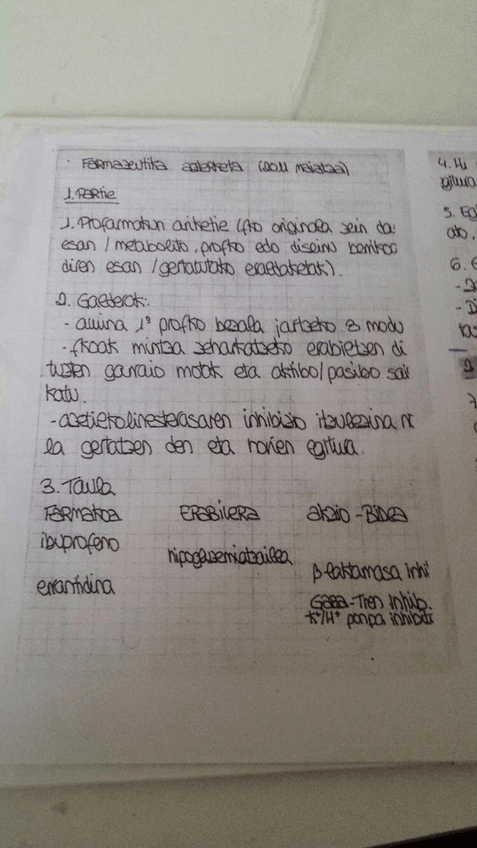 · Farmazeutika azterketa (2011 maiatza)
1. Partie
1. Profarmakon ariketie (fko originala zein da
esan / metabolito, profko edo diseinu berrikoa
diren esan / gertatutako eraldaketak).
2. Galderak:
- amina 1º profko bezala jartzeko 3 modu
- fkoak mintza zeharkatzeko erabiltzen di
tuzten garraio motak eta aktibo/pasibo sail
katu.
- azetilkolinesterasaren inhibizio itzulezina no
la gertatzen den eta horien egitura.
3. Taula
FARMAKOA ERABILERA akzio-BIDEA
ibuprofeno
hipogluzemiatzailea
β-laktamasa inhi
errantidina
GABA-Tren inhib.
K⁺/H⁺ ponpa inhibitz
4. Hi
egitura
5. Eg
ato.
6. E
- De
- Di
tas